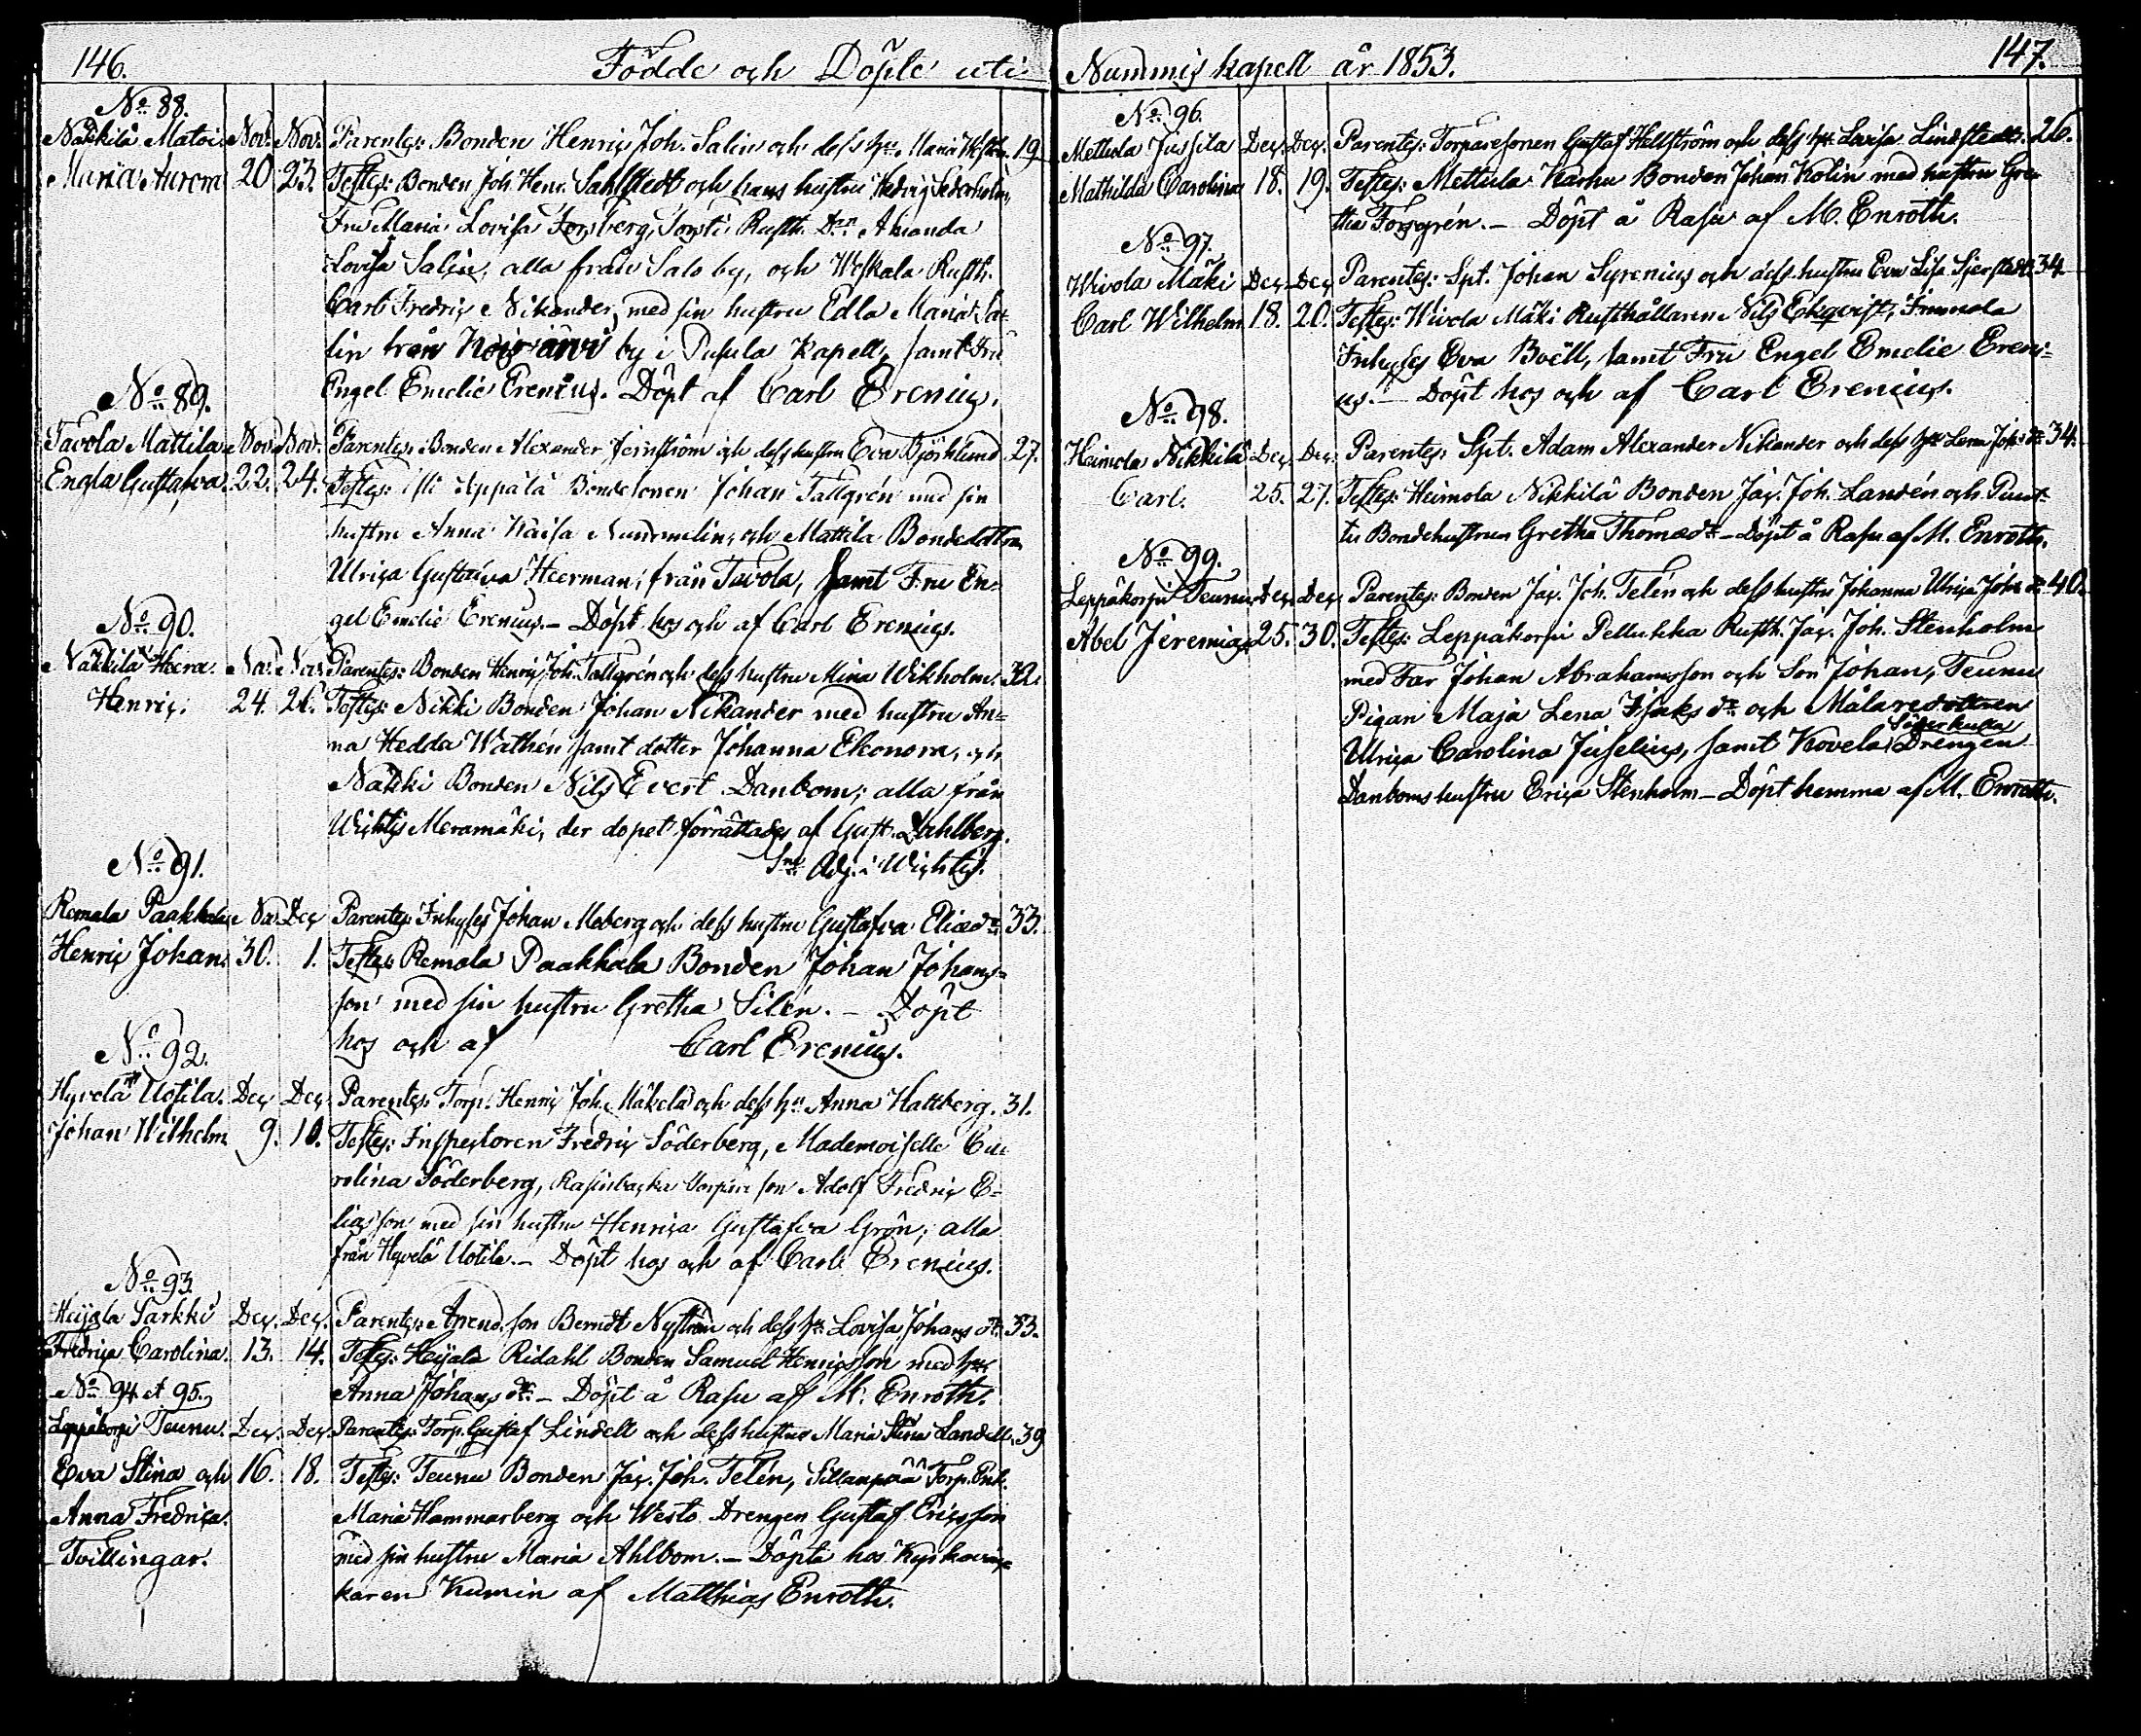 146.
Födde och Döpte uti
No 88.
Näkkilä Matoi Nov. Nov. Parentes: Bonden Henric Joh. Salin och dess hu. Maria 19
Maria Aurora 20 23. Testes: Bonden Joh. Henr. Sahlstedt och hans hustru Hedvig Sederholm,
Fru Maria Lovisa Forsberg, Torsti Rusth. Dr. Amanda
Lovisa Salin, alla från Salo by, och Weskala Rusth.
Carl Fredric Nikander, med sin hustru Edla Maria Sa-
lin från by i Pusula Kapell, samt Fru
Engel Emelie Erenius. Döpt af Carl Erenius.
No 89.
Tavola Mattila Nov. Nov. Parentes: Bonden Alexander Fernström och dess hustru Eva Björklund 27.
Engla Gustafva 22. 24. Testes: Isti Uppälä Bondesonen Johan Tallgrén med sin
hustru Anna Kaisa Nummelin, och Mattila Bondedottren
Ulrica Gustafva Heerman, från Tavola, samt Fru En-
gel Emelie Erenius. – Döpt hos och af Carl Erenius.
No 90.
Näkkilä Heera Nov. Nov. Parentes: Bonden Henric Joh. Tallgrén och dess hustru Mina Wikholm. 32.
Henric. 24. 26. Testes: Nikki Bonden Johan Nikander med hustru An-
na Hedda Wathén samt dotter Johanna Eleonora, och
Näkki Bonden Nils Evert Danbom; alla från
Wichtis Meramäki, der dopet förrättades af Gust. Dahlberg.
Adj. i Wichtis.
No 91.
Remala Paakkala Nov. Dec. Parentes: Inhyses Johan Moberg och dess hustru Gustafva Eliædr. 33.
Henric Johan. 30. 1. Testes: Remala Paakkala Bonden Johan Johans-
son med sin hustru Gretha Silén. – Döpt
hos och af Carl Erenius.
No 92.
Hyvelä Uotila. Dec. Dec. Parentes: Torp. Henric Joh. Mäkelä och dess hu Anna Hattberg. 31.
Johan Wilhelm 9. 10. Testes: Inspectoren Fredric Söderberg, Mademoiselle Ca-
rolina Söderberg, Torpare son Adolf Fredric E-
liasson med sin hustru Henrica Gustafva Grön, alla
från Hyvelä Uotila. – Döpt hos och af Carl Erenius.
No 93.
Heijala Sarkki Dec. Dec. Parentes: Arrend. son Berndt Nyström och dess hu Lovisa Johans dr. 33.
Fredrica Carolina. 13. 14. Testes: Heijala Ridahl Bonden Samuel Henricsson med hu
Anna Johans dr. – Döpt å Rasu af M. Enroth.
No 94 et 95.
Leppäkorpi Teunu. Dec. Dec. Parentes: Torp. Gustaf Lindell och dess hustru Maria Stina Landell. 39
Eva Stina och 16. 18. Testes: Teunu Bonden Jac. Joh. Telén, Sillanpää Torp. Enk.
Anna Fredrica. Maria Hammarberg och Westo Drengen Gustaf Ericsson
Tvillingar. med sin hustru Maria Ahlbom. – Döpta hos Kyrkoväk-
taren Kumin af Matthias Enroth.
147.
Nummis kapell år 1853.
No 96.
Mettula Jussila Dec. Dec. Parentes: Torparesonen Gustaf Hellström och dess hu Lovisa Lindstedt. 26.
Mathilda Carolina 18. 19. Testes: Mettula Karhu Bonden Johan Kolin med hustru Gre-
tha Forsgrén. – Döpt å Rasu af M. Enroth.
No 97.
Wivola Mäki Dec. Dec. Parentes: Spt. Johan Syrenius och dess hustru Eva Lisa 34
Carl Wilhelm 18. 20. Testes: Wivola Mäki Rusthållaren Nils Ekqvist, Immola
Inhyses Eva Boëll, samt Fru Engel Emelie Ereni-
us. – Döpt hos och af Carl Erenius.
No 98.
Heimola Nikkilä Dec. Dec. Parentes: Spt. Adam Alexander Nikander och dess hu Lena Joh. dr. 34.
Carl. 25. 27. Testes: Heimola Nikkilä Bonden Jac. Joh. Landén och Punt-
tis Bondehustrun Gretha Thomædr. – Döpt å Rasu af M. Enroth.
No 99.
Leppäkorpi Teunu Dec. Dec. Parentes: Bonden Jac. Joh. Telén och dess hustru Johanna Ulrica Johs dr. 40.
Abel Jeremias 25. 30. Testes: Leppäkorpi Pellukka Rusth. Jac. Joh. Stenholm
med Far Johan Abrahamsson och Son Johan, Teunu
Pigan Maja Lena Isaks dr. och Målaredottren
Ulrica Carolina Juselius, samt Kovela Drengen
Danboms hustru Erica Stenholm – Döpt hemma af M. Enroth.